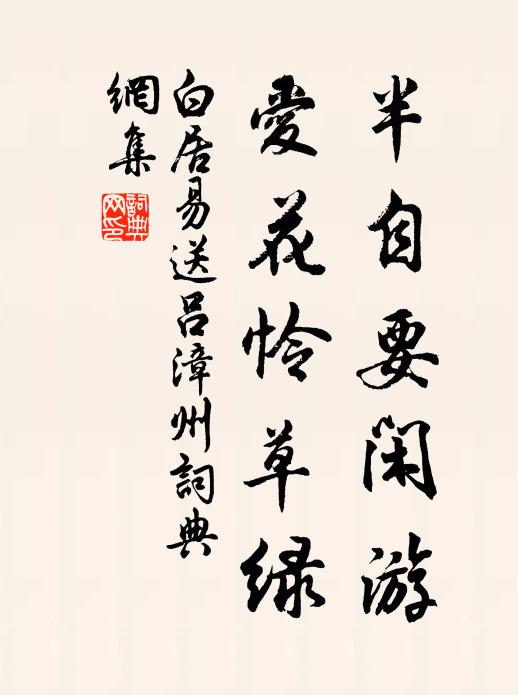 半自要闲游
愛花怜草绿
白居易送呂漳州詞典
網集
詞典
网印